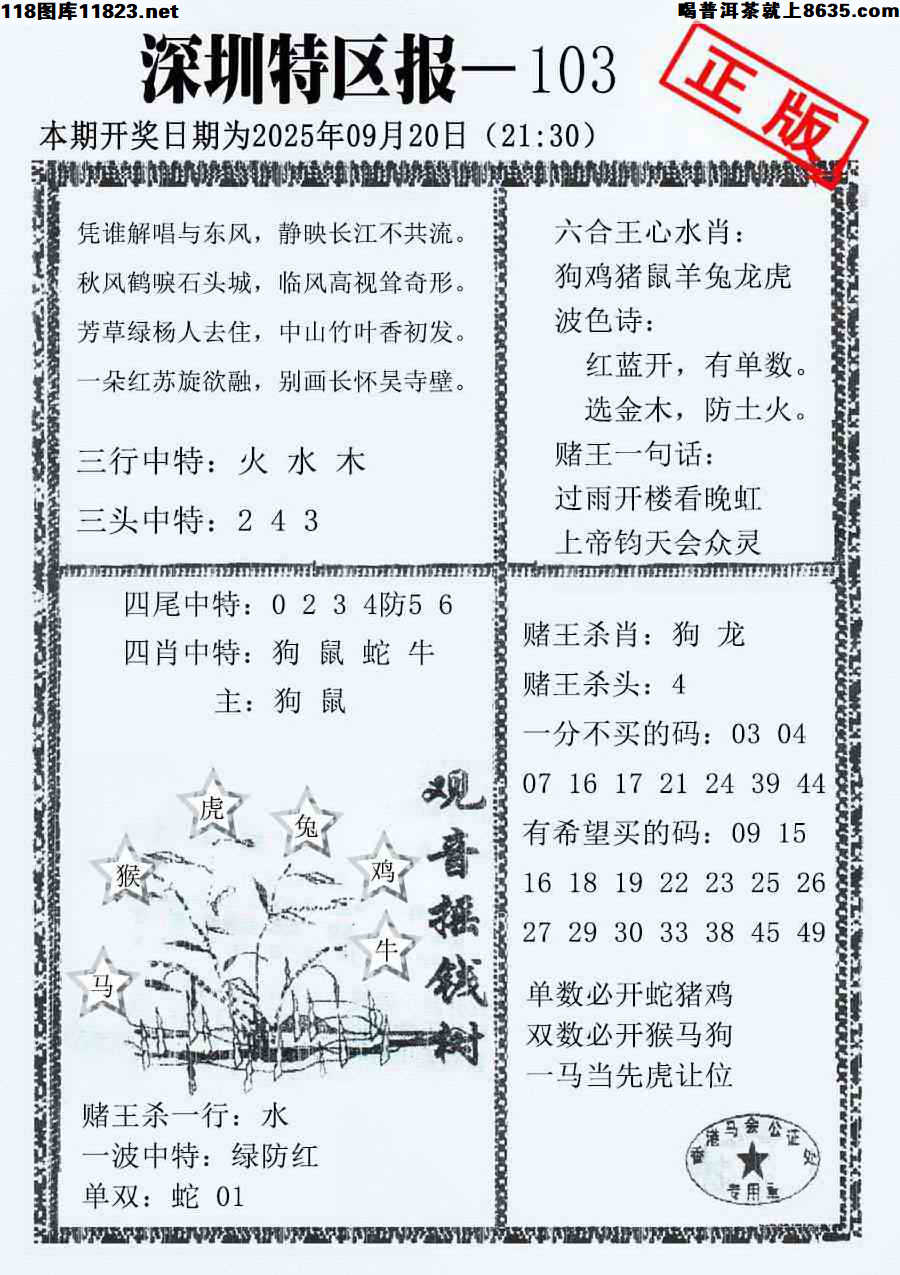 118图库11823.net
喝普洱茶就上8635.com
深圳特区报—103
正版
本期开奖日期为2025年09月20日（21:30）
凭谁解唱与东风，静映长江不共流。
秋风鹤唳石头城，临风高视耸奇形。
芳草绿杨人去住，中山竹叶香初发。
一朵红苏旋欲融，别画长怀吴寺壁。
三行中特：火 水 木
三头中特：2 4 3
六合王心水肖：
狗鸡猪鼠羊兔龙虎
波色诗：
红蓝开，有单数。
选金木，防土火。
赌王一句话：
过雨开楼看晚虹
上帝钧天会众灵
四尾中特：0 2 3 4防5 6
四肖中特：狗 鼠 蛇 牛
主：狗 鼠
观音摇钱树
虎
兔
猴
鸡
牛
马
赌王杀一行：水
一波中特：绿防红
单双：蛇 01
赌王杀肖：狗 龙
赌王杀头：4
一分不买的码：03 04
07 16 17 21 24 39 44
有希望买的码：09 15
16 18 19 22 23 25 26
27 29 30 33 38 45 49
单数必开蛇猪鸡
双数必开猴马狗
一马当先虎让位
香港马会公证处
专用章